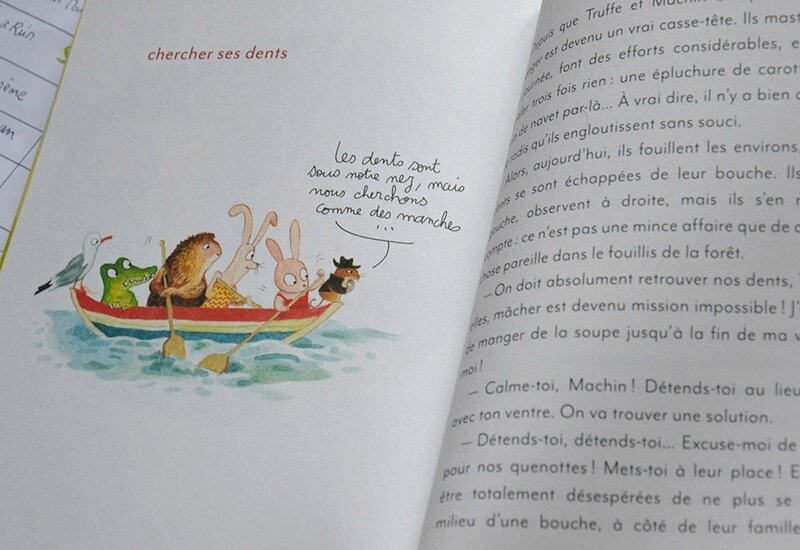 a Ruis
même
an
chercher ses dents
Les dents sont
sous notre nez, mais
nous cherchons
comme des manches
...
Depuis que Truffe et Machin
est devenu un vrai casse-tête. Ils mast
font des efforts considérables, e
trois fois rien : une épluchure de carot
de navet par-là... À vrai dire, il n'y a bien
radis qu'ils engloutissent sans souci.
Alors, aujourd'hui, ils fouillent les environs,
se sont échappées de leur bouche. Ils
observent à droite, mais ils s'en
compte : ce n'est pas une mince affaire que de
pareille dans le fouillis de la forêt.
— On doit absolument retrouver nos dents,
elles, mâcher est devenu mission impossible ! J'
de manger de la soupe jusqu'à la fin de ma v
moi !
— Calme-toi, Machin ! Détends-toi au lieu
avec ton ventre. On va trouver une solution.
— Détends-toi, détends-toi... Excuse-moi de
pour nos quenottes ! Mets-toi à leur place ! E
être totalement désespérées de ne plus se
milieu d'une bouche, à côté de leur famille